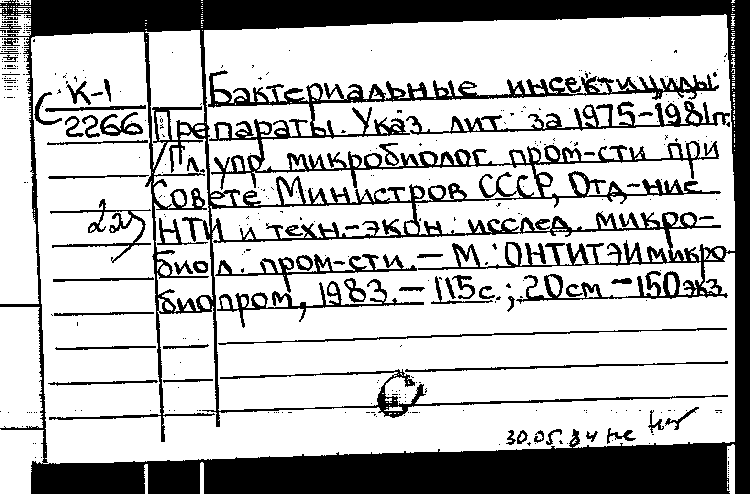 К-1
2266
Бактериальные инсектициды:
Препараты. Указ. лит. за 1975-1981гг.
/Гл. упр. микробиолог. пром-сти при
Совете Министров СССР, Отд-ние
НТИ и техн.-экон. исслед. микро-
биол. пром-сти. — М.: ОНТИТЭИмикро-
биопром, 1983. — 115с.; 20см. — 150экз.
30.05.84